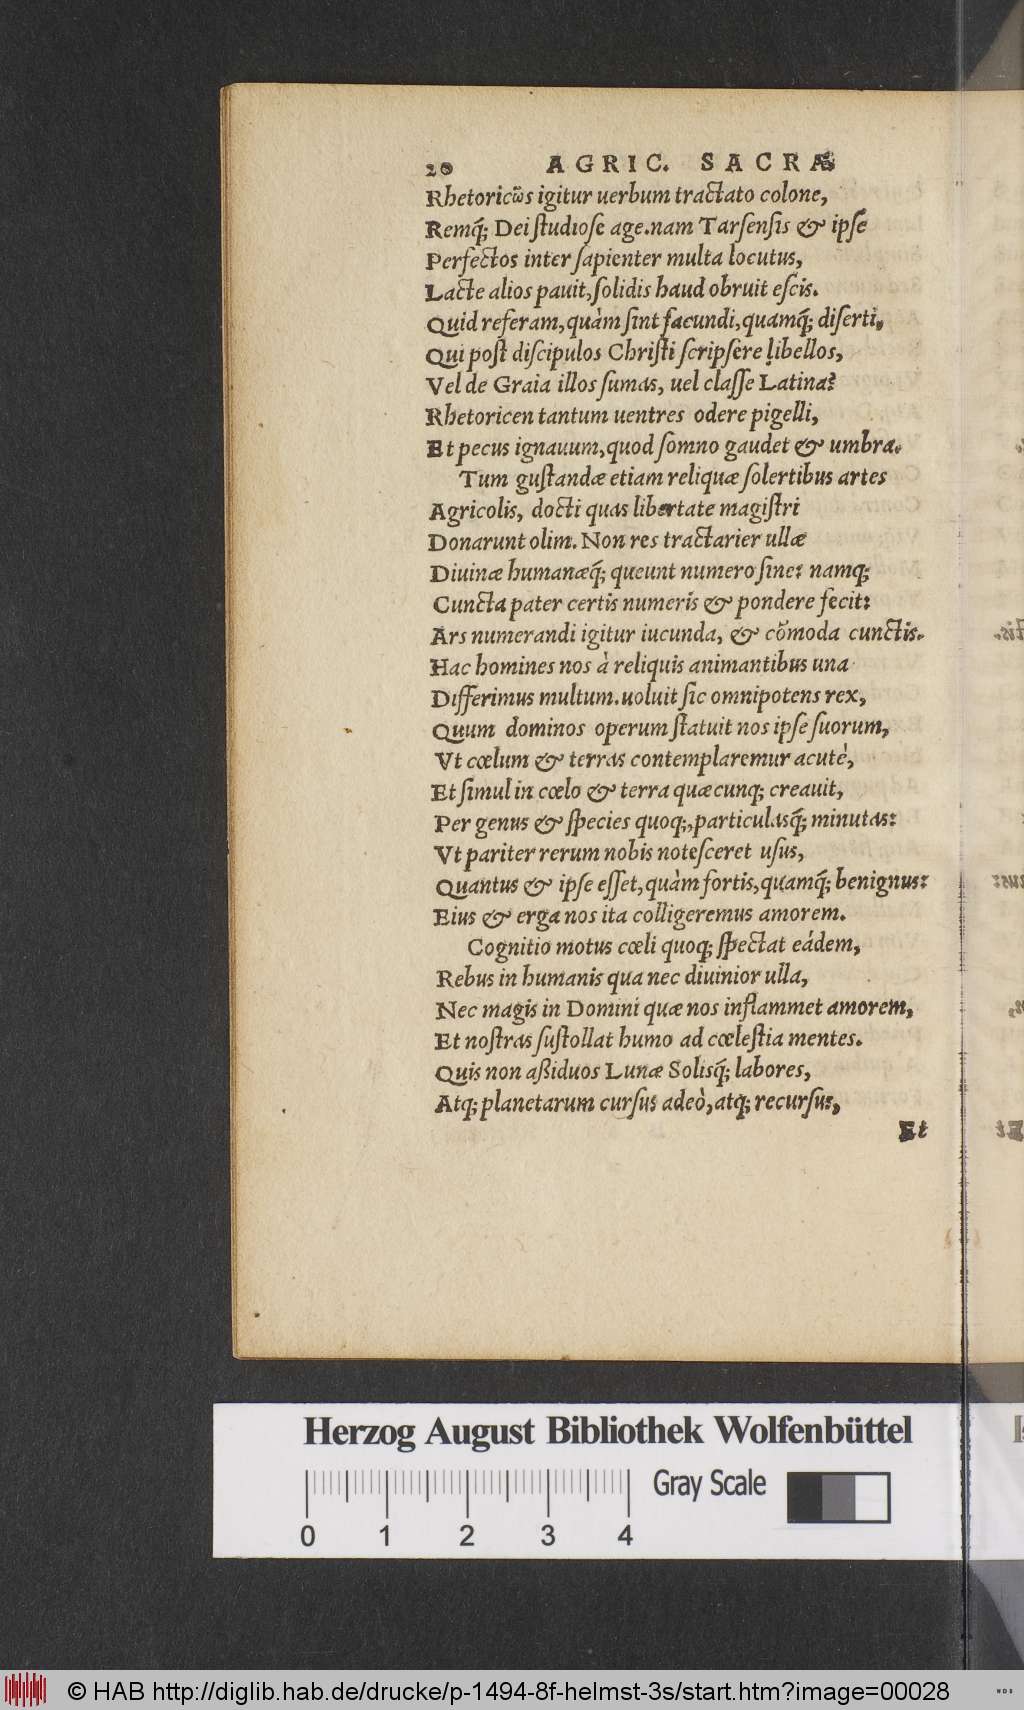 20 AGRIC. SACRÆ
Rhetoricω̃s igitur uerbum tractato colone,
Remq́; Dei studiose age.nam Tarsensis & ipsẽ
Perfectos inter sapienter multa locutus,
Lacte alios pauit,solidis haud obruit escis.
Quid referam,quàm sint facundi,quamq́; diserti,
Qui post discipulos Christi scripsere libellos,
Vel de Graia illos sumas, uel classe Latina?
Rhetoricen tantum uentres odere pigelli,
Et pecus ignauum,quod somno gaudet & umbra.
Tum gustandæ etiam reliquæ solertibus artes
Agricolis, docti quas libertate magistri
Donarunt olim. Non res tractarier ullæ
Diuinæ humanæq́; queunt numero sine: namq;
Cuncta pater certis numeris & pondere fecit:
Ars numerandi igitur iucunda, & cõmoda cunctis.
Hac homines nos à reliquis animantibus una
Differimus multum.uoluit sic omnipotens rex,
Quum dominos operum statuit nos ipse suorum,
Vt cœlum & terras contemplaremur acutè,
Et simul in cœlo & terra quæcunq; creauit,
Per genus & species quoq;,particulasq́; minutas:
Vt pariter rerum nobis notesceret usus,
Quantus & ipse esset,quàm fortis,quamq́; benignus:
Eius & erga nos ita colligeremus amorem.
Cognitio motus cœli quoq; spectat eádem,
Rebus in humanis qua nec diuinior ulla,
Nec magis in Domini quæ nos inflammet amorem,
Et nostras sustollat humo ad cœlestia mentes.
Quis non aßiduos Lunæ Solisq́; labores,
Atq; planetarum cursus adeò,atq; recursus,
Et
Herzog August Bibliothek Wolfenbüttel
0 1 2 3 4 Gray Scale
© HAB http://diglib.hab.de/drucke/p-1494-8f-helmst-3s/start.htm?image=00028